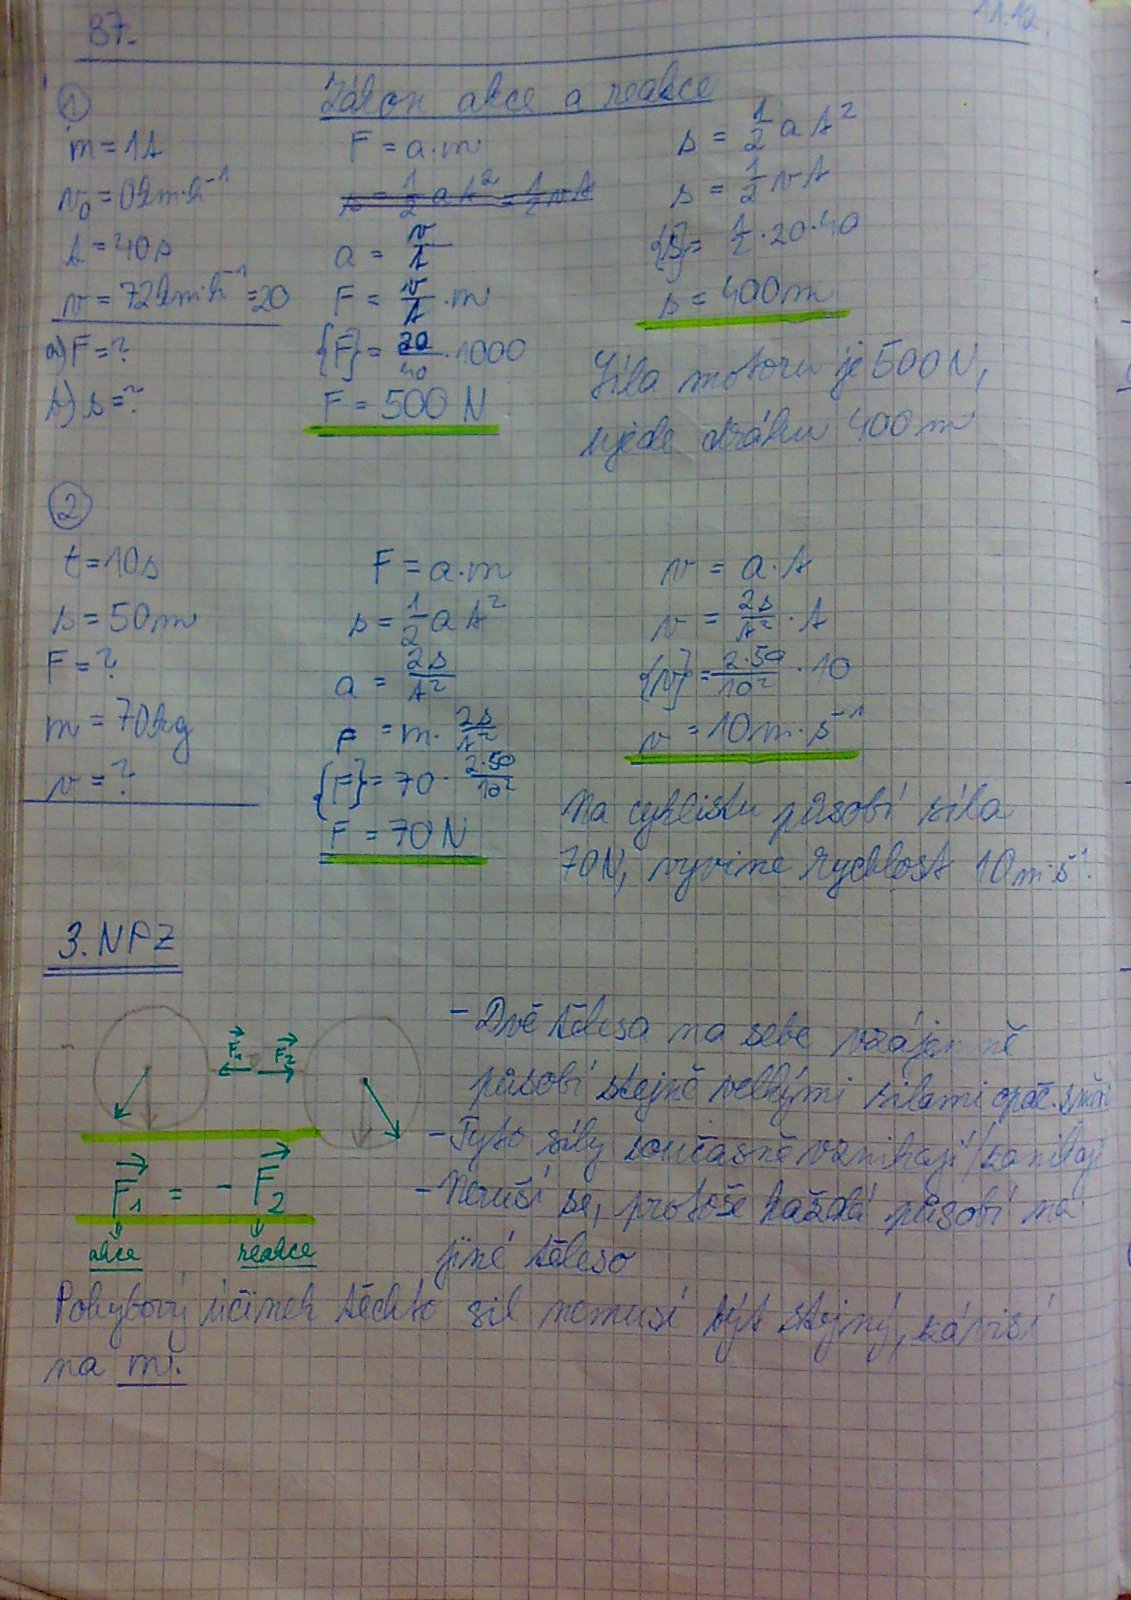 37.
11.12.
Zákon akce a reakce
①
m = 1t
v₀ = 0km·h⁻¹
t = 40s
v = 72km·h⁻¹ = 20
a) F = ?
b) s = ?
F = a·m
s = 1/2 a t² = 1/2 v t
a = v/t
F = v/t · m
{F} = 20/40 · 1000
F = 500 N
s = 1/2 a t²
s = 1/2 v t
{s} = 1/2 · 20 · 40
s = 400m
Síla motoru je 500N,
ujede dráhu 400m
②
t = 10s
s = 50m
F = ?
m = 70kg
v = ?
F = a·m
s = 1/2 a t²
a = 2s/t²
F = m · 2s/t²
{F} = 70 · 2·50/10²
F = 70N
v = a·t
v = 2s/t² · t
{v} = 2·50/10² · 10
v = 10m·s⁻¹
Na cyklistu působí síla
70N, vyvine rychlost 10m·s⁻¹.
3. NPZ
F₁ F₂
F₁ = - F₂
akce reakce
- Dvě tělesa na sebe vzájemně
působí stejně velkými silami opač. směr.
- Tyto síly současně vznikají/zanikají
- Neruší se, protože každá působí na
jiné těleso
Pohybový účinek těchto sil nemusí být stejný, závisí
na m.